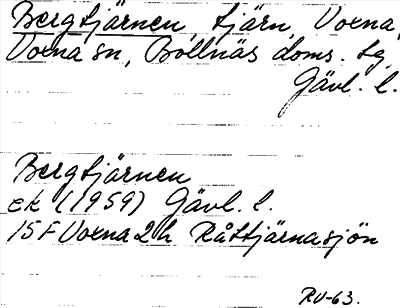 Bergtjärnen, tjärn, Voxna,
Voxna sn, Bollnäs doms. tg,
Gävl. l.
Bergtjärnen
ek (1959) Gävl. l.
15F Voxna 2h Råttjärnasjön
RV-63.